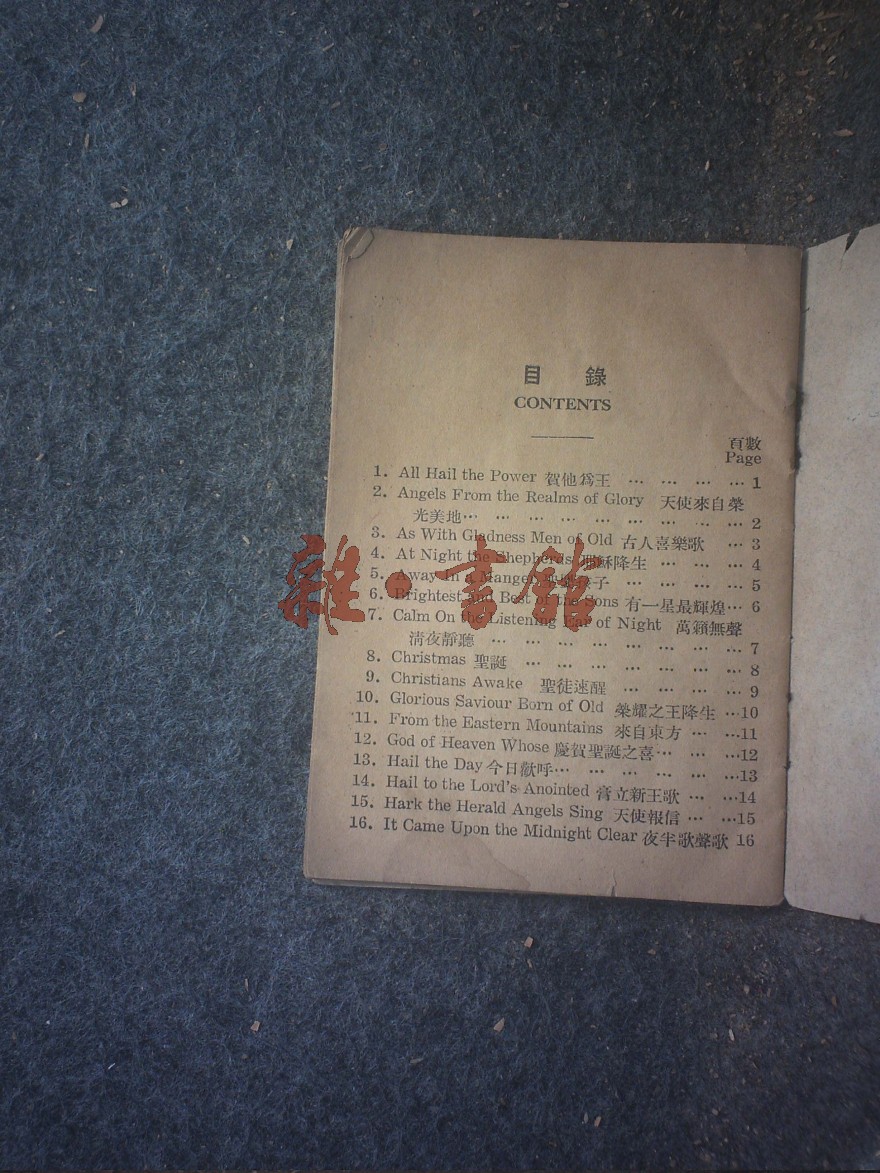 目 錄
CONTENTS
頁數
Page
1. All Hail the Power 賀他爲王 … … … … 1
2. Angels From the Realms of Glory 天使來自榮
光美地… … … … … … … … … 2
3. As With Gladness Men of Old 古人喜樂歌 … 3
4. At Night the Shepherds 耶穌降生 … … … 4
5. Away In a Manger 聖嬰 子 … … … … 5
6. Brightest and Best of the Sons 有一星最輝煌… 6
7. Calm On the Listening Ear of Night 萬籟無聲
淸夜靜聽 … … … … … … … … 7
8. Christmas 聖誕 … … … … … … … 8
9. Christians Awake 聖徒速醒 … … … … 9
10. Glorious Saviour Born of Old 榮耀之王降生 …10
11. From the Eastern Mountains 來自東方 … …11
12. God of Heaven Whose 慶賀聖誕之喜… … …12
13. Hail the Day 今日歡呼… … … … … …13
14. Hail to the Lord's Anointed 膏立新王歌 … …14
15. Hark the Herald Angels Sing 天使報信 … …15
16. It Came Upon the Midnight Clear 夜半歌聲歌 16
雜·書館